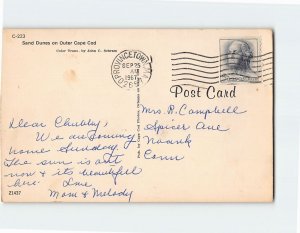 C-233
Sand Dunes on Outer Cape Cod
Color Trans. by John C. Schram
PROVINCETOWN
SEP 25
AM
1967
Post Card
Dear Chubby,
We are coming
home Sunday.
The sun is out
now & its beautiful
here. Love
Mom & Melody
21437
Mrs. R. Campbell
Spicer Ave
Noank
Conn